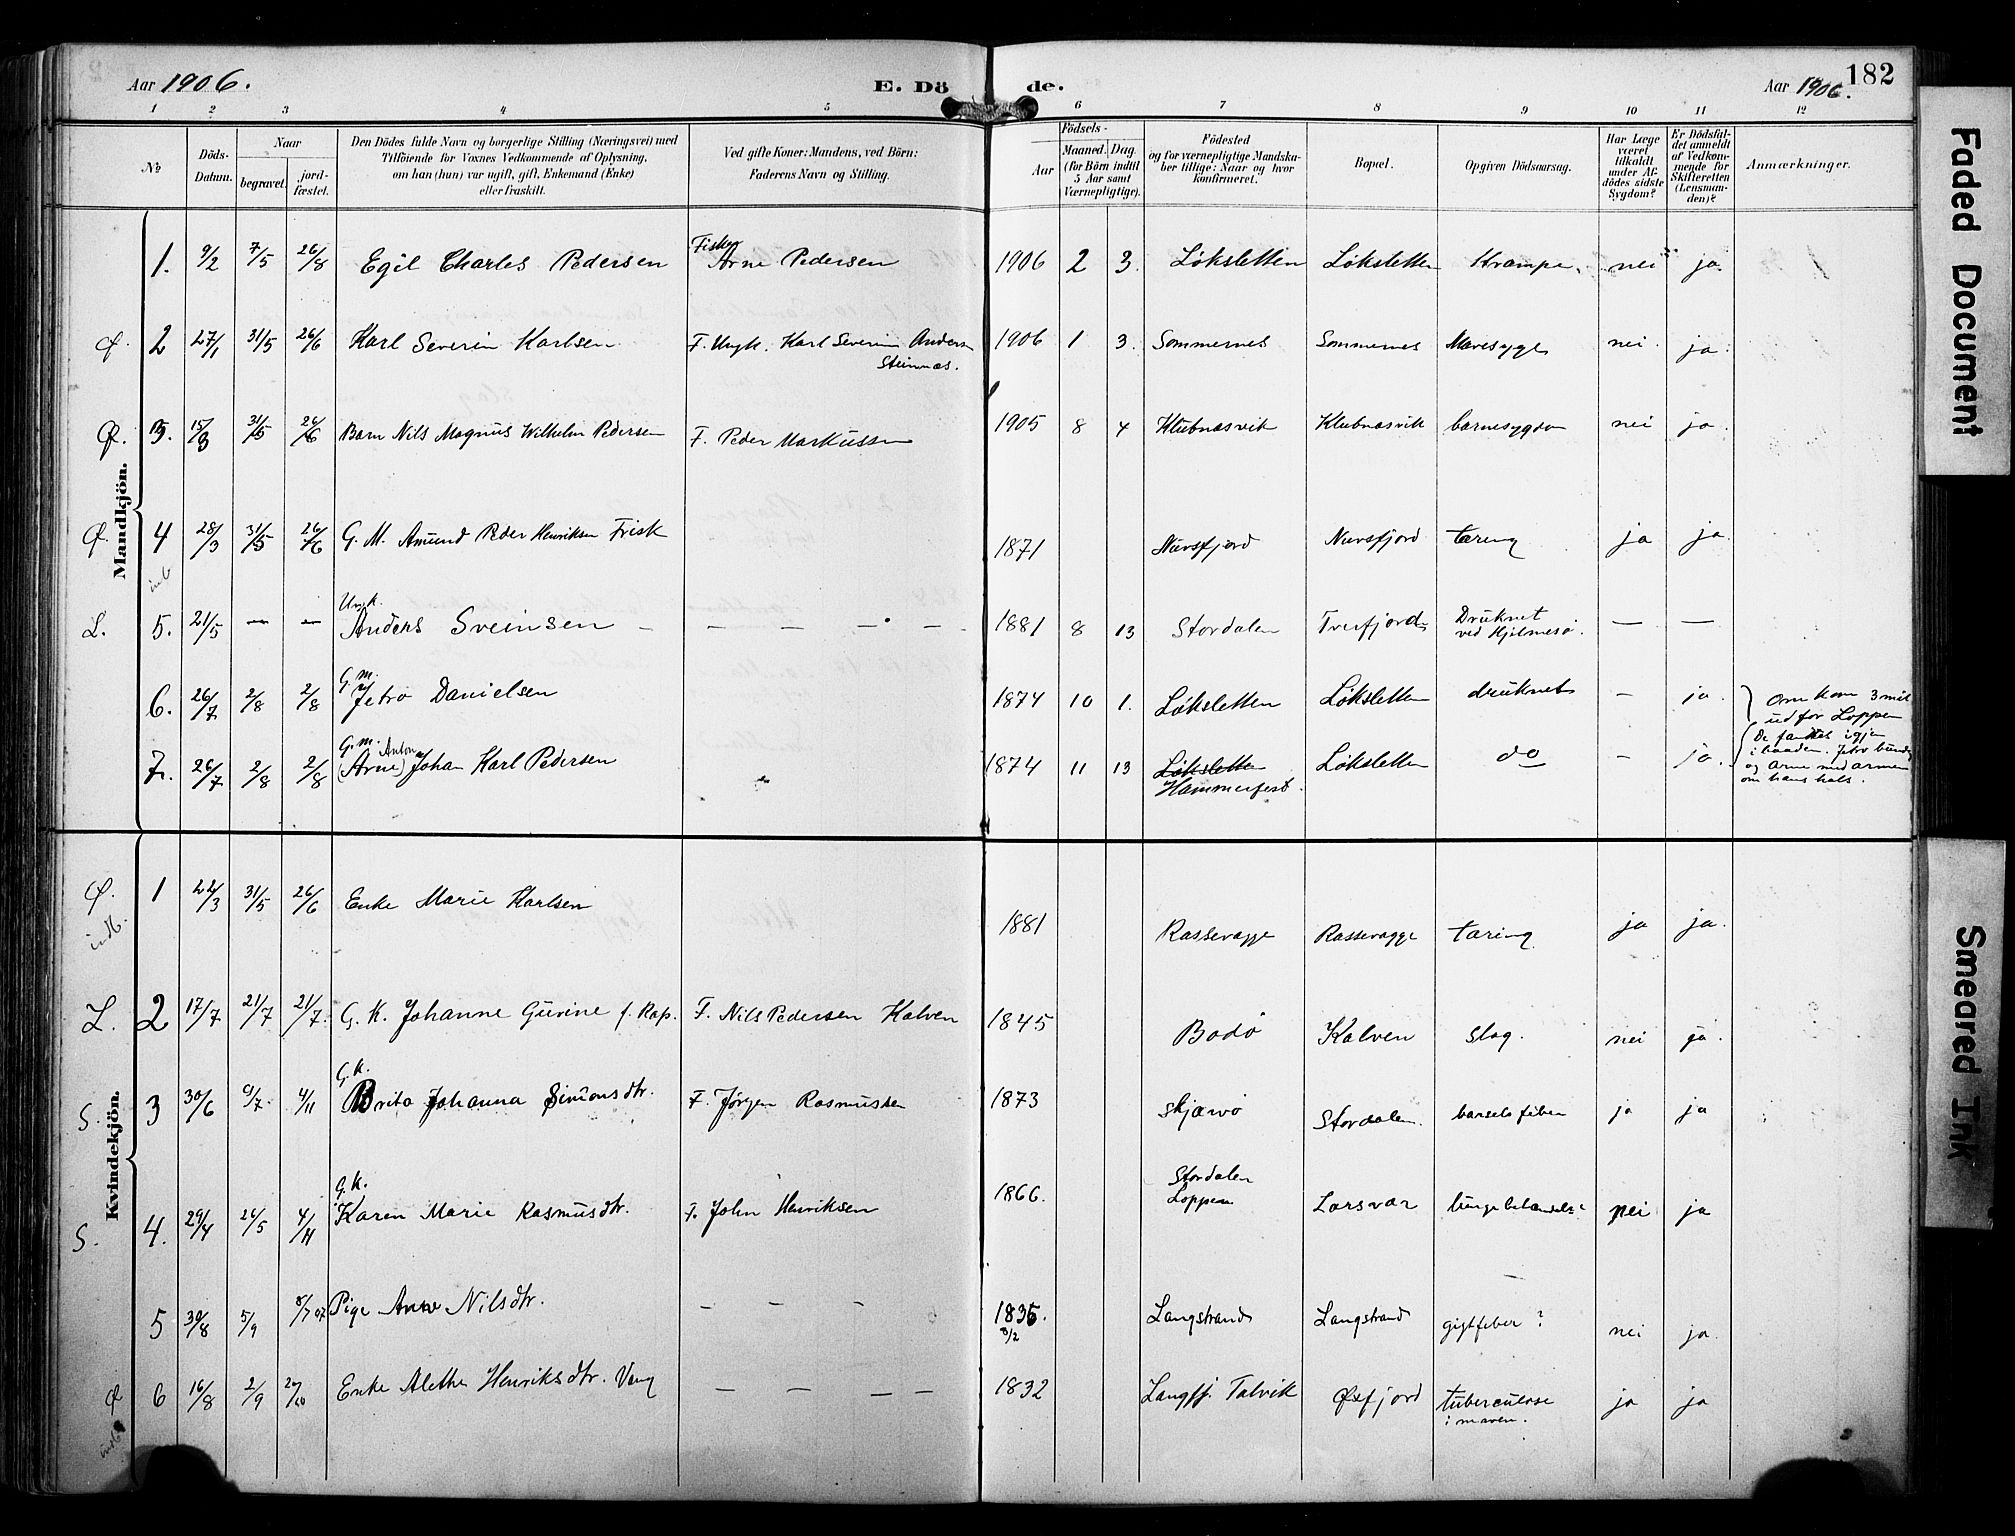 Aar 1906. E. Dö de. Aar 1906. 182
1 2 3 4 5 6 7 8 9 10 11 12
No
Döds-Datum.
Naar
begravet.
jord-fæstet.
Den Dödes fulde Navn og borgerlige Stilling (Næringsvei) med
Tilföiende for Voxnes Vedkommende af Oplysning,
om han (hun) var ugift, gift, Enkemand (Enke)
eller fraskilt.
Ved gifte Koner: Mandens, ved Börn:
Faderens Navn og Stilling.
Födsels-
Aar
Maaned. Dag.
(for Börn indtil
5 Aar samt
Værnepligtige).
Födested
og for værnepligtige Mandska-
ber tillige: Naar og hvor
konfirmeret.
Bopæl.
Opgiven Dödsaarsag.
Har Læge
været
tilkaldt
under Af-
dödes sidste
Sygdom?
Er Dödsfal-
det anmeldt
af Vedkom-
mende for
Skifteretten
(Lensman-
den)?
Anmærkninger.
Mandkjön.
1. 9/2 7/5 26/8 Egil Charles Pedersen Fisker Arne Pedersen 1906 2 3. Løksletten Løksletten Krampe. nei ja.
Ø. 2 27/1 31/5 26/6 Karl Severin Karlsen F. Ungk. Karl Severin Anders 1906 1 3. Sommernes Sommernes Mavesyge nei. ja.
Steinnæs.
Ø. 3. 15/3 31/5 26/6 Barn Nils Magnus Wilhelm Pedersen F. Peder Markussen 1905 8 4 Klubnæsvik Klubnæsvik barnesygdom nei ja.
Ø. 4 28/3 31/5 26/6 G. M. Amund Peder Henriksen Frisk 1871 Nuvsfjord Nuvsfjord tæring ja ja.
indb
L. 5. 21/5 — — Ungk. Anders Sveinsen — — — — — — 1881 8 13 Stordalen Tverfjord Druknet
ved Hjelmesø. — —
6. 26/7 2/8 2/8 G. m. Jetro Danielsen 1874 10 1. Løksletten Løksletten druknet — ja. Omkom 3 mil
ud for Loppen
7. 26/7 2/8 2/8 G. m. (Arne) Anton Johan Karl Pedersen 1874 11 13 Løksletten Løksletten do — ja.
Hammerfest.
De fandtes igjen
i baaden. Jetro bunden
og Arne med armen
om hans hals.
Kvindekjön.
Ø. 1 22/3 31/5 26/6 Enke Marie Karlsen 1881 Rassevagge Rassevagge tæring ja ja.
indb.
L. 2 17/7 21/7 21/7. G. K. Johanne Gurine f. Rap. F. Nils Pedersen Kalven 1845 Bodø Kalven Slag. nei ja.
S. 3 30/6 9/7. 4/11 G. K. Brita Johanna Simonsdtr. F. Jørgen Rasmussen 1873 Skjærvø Stordalen. barselsfeber ja ja
S. 4. 29/4 26/5 4/11 G. K. Karen Marie Rasmusdtr. F. John Henriksen 1866. Stordalen
Loppen Larsvar nei ja
5 30/8 5/9 8/7 07 Pige Anne Nilsdtr. — — — 1835. 3/2 Langstrand Langstrand gigtfeber? nei ja.
Ø 6 16/8 2/9 20/10 Enke Alethe Henriksdtr. Vang — — — — 1832 Langfj. Talvik Øxfjord tuberculose
i maven. ja ja
indb
Faded Document
Smeared Ink